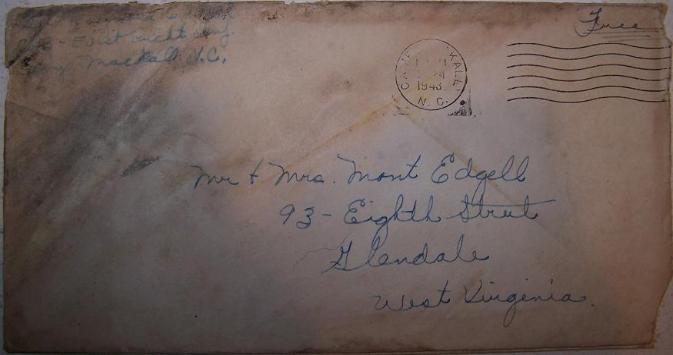 Mackall N.C.
Free
CAMP MACKALL
1943
N. C.
Mr + Mrs. Mont Edgell
93 - Eighth Street
Glendale
West Virginia.